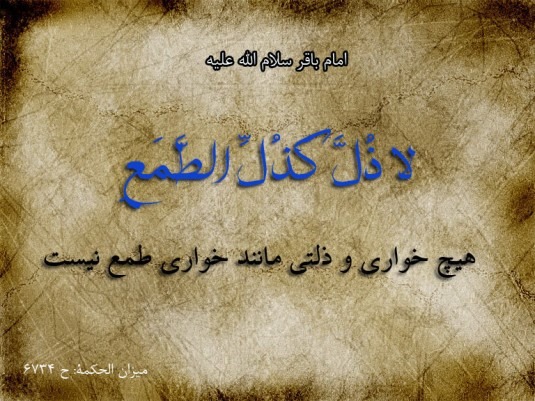 امام باقر سلام الله علیه
لا ذُلَّ كَذُلِّ الطَّمَعِ
هیچ خواری و ذلتی مانند خواری طمع نیست
میزان الحکمة: ح ۶۷۳۴